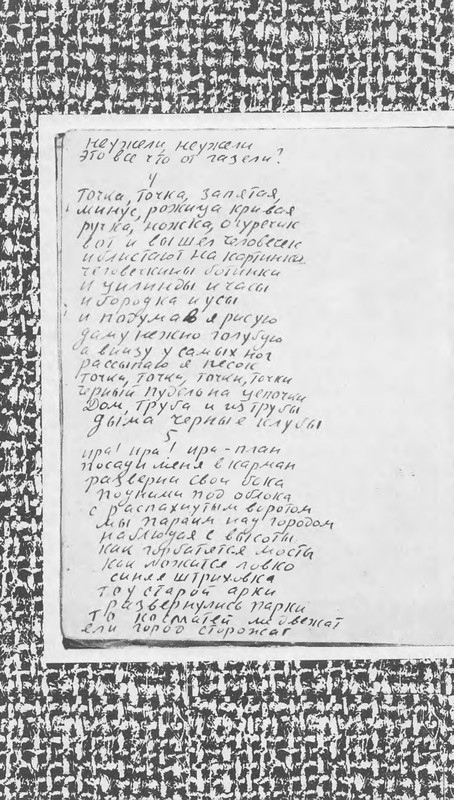 неужели, неужели
это все что от газели?
4
точка, точка, запятая,
минус, рожица кривая
ручка, ножка, огуречик
вот и вышел человечек
и блистают на картинке
человечкины ботинки
и цилиндр и часы
и бородка и усы
и подумав я рисую
даму нежно голубую
а внизу у самых ног
рассыпаю я песок
точки, точки, точки, точки
черный пудель на цепочки
Дом, труба и из трубы
дыма черные клубы
5
ира! ира! ира-план
посади меня в карман
разверни свои бока
подними под облока
с распахнутым воротом
мы парим над городом
наблюдая с высоты
как горбатятся мосты
как ложится ловко
синяя штриховка
старой арки
развернулись парки
то косматей медвежат
ели город сторожат